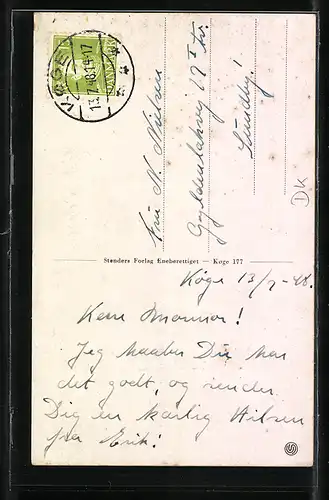 KØGE
13.7.48.15-17
DANMARK
Fru N. Nielsen
Gyldenlakvej 19 I tv.
Sundby!
DK
Stenders Forlag Eneberettiget — Køge 177
Køge 13/7-48.
Kære Mormor!
Jeg haaber Du har
det godt, og sender
Dig en kærlig Hilsen
fra Erik!